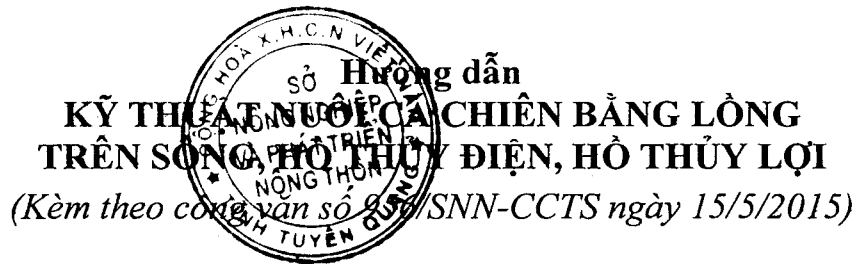 Hướng dẫn
KỸ THUẬT NUÔI CÁ CHIÊN BẰNG LỒNG
TRÊN SÔNG, HỒ THỦY ĐIỆN, HỒ THỦY LỢI
(Kèm theo công văn số /SNN-CCTS ngày 15/5/2015)
CỘNG HOÀ X.H.C.N VIỆT NAM
SỞ
NÔNG NGHIỆP
VÀ PHÁT TRIỂN
NÔNG THÔN
TỈNH TUYÊN QUANG